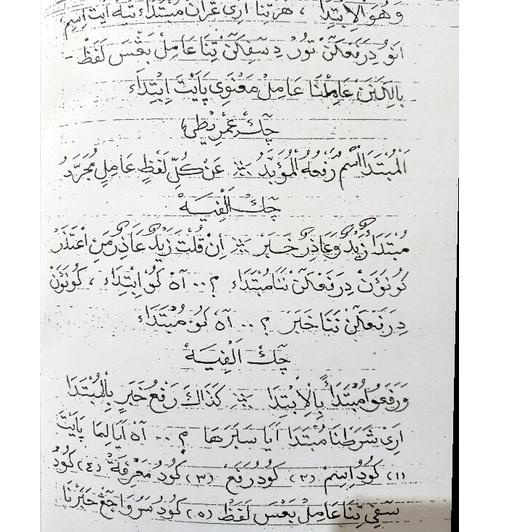 وَهُوَ الْاِبْتِدَا ، هَرْتِنَا اَرِيْ مُبْتَدَاء اِيَتْ اِسِمْ
دِرَفَعَكَنْ تِنَا عَامِلْ بَڠْسَ لَفَظْ -
عَامِلْنَا عَامِلْ مَعْنَوِي يَايْتَ اِبْتِدَاء
چَكْ عِمْرِيْطِيْ؛
اَلْمُبْتَدَا اسْمٌ رَفْعُهُ مُؤَبَّدُ ⁘ عَنْ كُلِّ لَفْظٍ عَامِلٍ مُجَرَّدُ
چَكْ اَلْفِيَهْ
مُبْتَدَأٌ زَيْدٌ وَعَاذِرٌ خَبَرْ ⁘ اِنْ قُلْتَ زَيْدٌ عَاذِرٌ مَنِ اعْتَذَرْ
دِرَفَعَكَنْ نَنَا مُبْتَدَاء ؟ .. آهْ كَوُ اِبْتِدَاء ،
دِرَفَعَكَنْ نَنَا خَبَرْ ؟ .. آهْ كَوُ مُبْتَدَاء
چَكْ اَلْفِيَهْ
وَرَفَعُوْا مُبْتَدَأً بِالْاِبْتِدَا ⁘ كَذَاكَ رَفْعُ خَبَرٍ بِالْمُبْتَدَا
اَرِيْ شَرَطْنَا مُبْتَدَا اَيَا سَبَرَهَا ؟ .. آهْ اَيَا لِيمَا يَايْتَ
(١) كَوُدُ اِسِمْ (٢) كَوُدُ رَفَعْ (٣) كَوُدُ مَعْرِفَةْ (٤) كَوُدُ
سَڤِيْ تِنَا عَامِلْ بَڠْسَ لَفَظْ (٥) كَوُدُ خَبَرْنَا